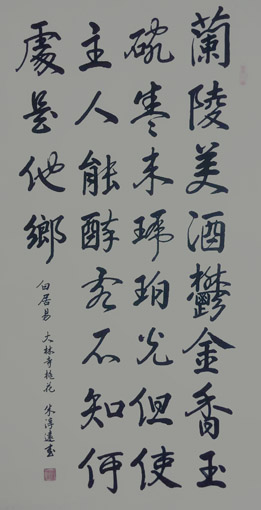 蘭陵美酒鬱金香玉
碗盛来琥珀光但使
主人能酔客不知何
處是他鄉
白居易 大林寺桃花 朱淳遠書